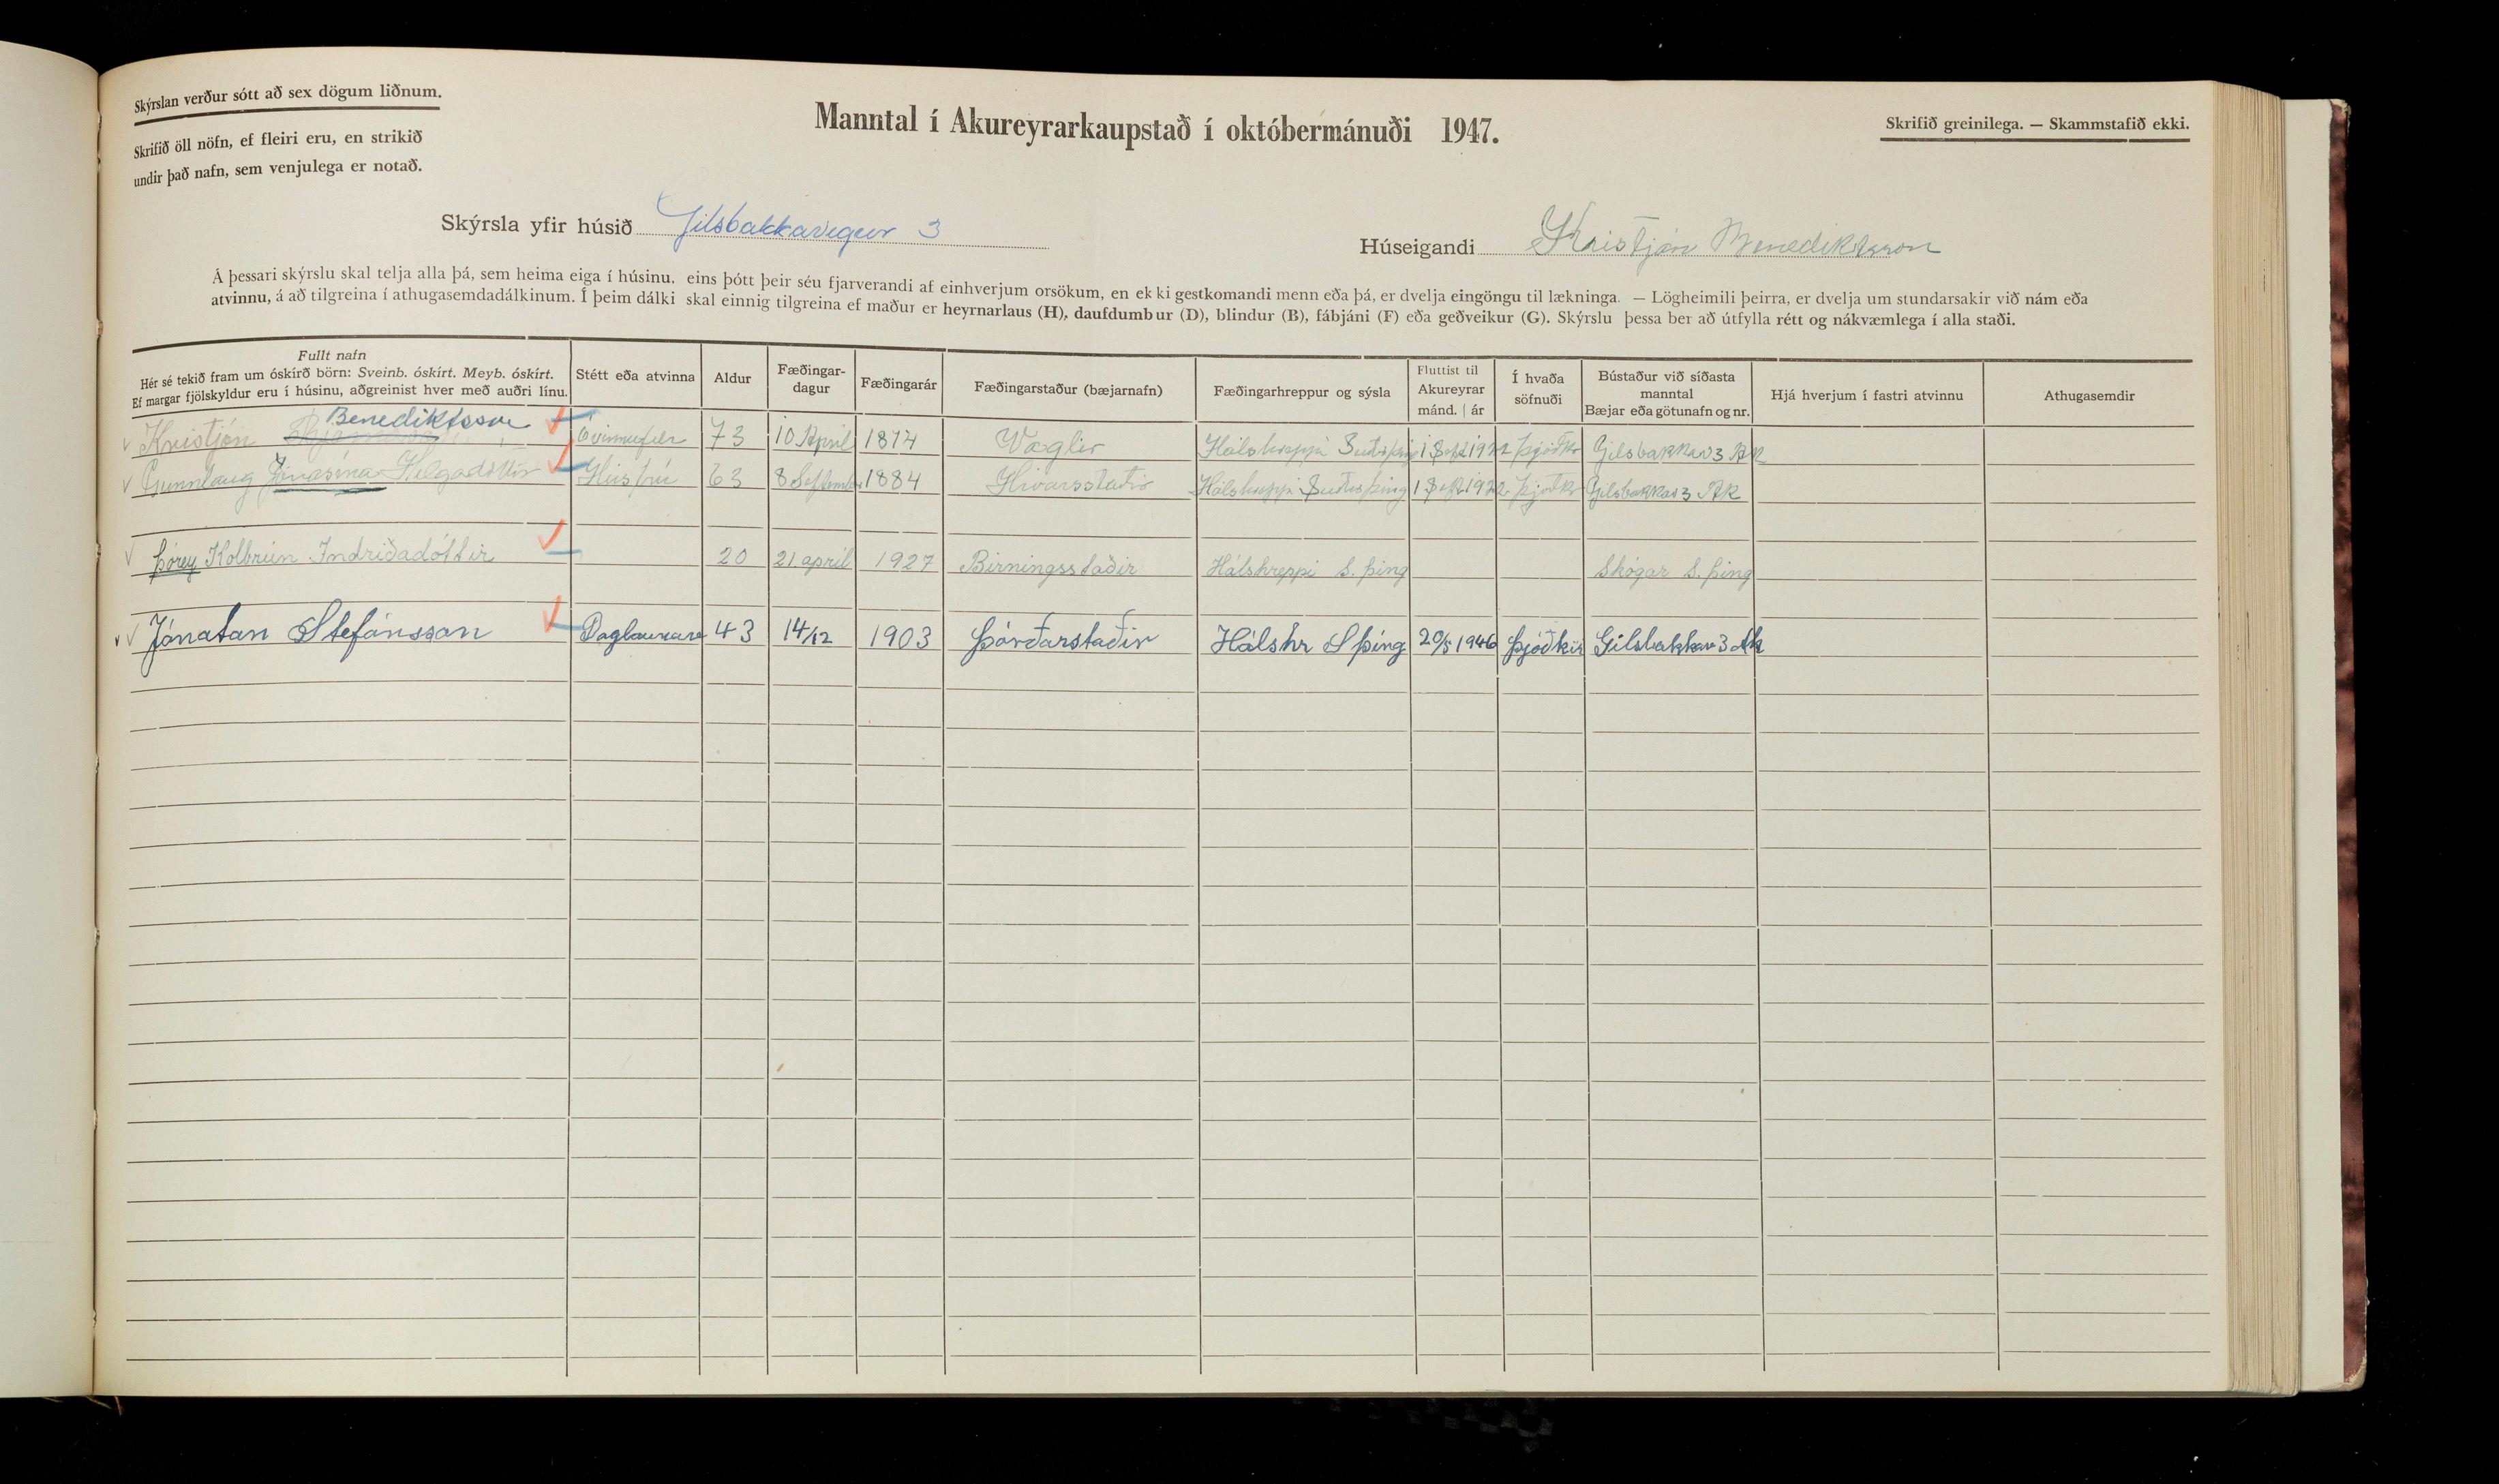 Skýrslan verður sótt að sex dögum liðnum.
Skrifið öll nöfn, ef fleiri eru, en strikið
undir það nafn, sem venjulega er notað.
Manntal í Akureyrarkaupstað í októbermánuði 1947.
Skrifið greinilega. — Skammstafið ekki.
Skýrsla yfir húsið Gilsbakkavegur 3
Húseigandi Kristján Benediktsson
Á þessari skýrslu skal telja alla þá, sem heima eiga í húsinu, eins þótt þeir séu fjarverandi af einhverjum orsökum, en ekki gestkomandi menn eða þá, er dvelja eingöngu til lækninga. — Lögheimili þeirra, er dvelja um stundarsakir við nám eða
atvinnu, á að tilgreina í athugasemdadálkinum. Í þeim dálki skal einnig tilgreina ef maður er heyrnarlaus (H), daufdumbur (D), blindur (B), fábjáni (F) eða geðveikur (G). Skýrslu þessa ber að útfylla rétt og nákvæmlega í alla staði.
Fullt nafn
Hér sé tekið fram um óskírð börn: Sveinb. óskírt. Meyb. óskírt.
Ef margar fjölskyldur eru í húsinu, aðgreinist hver með auðri línu.
Stétt eða atvinna
Aldur
Fæðingar-
dagur
Fæðingarár
Fæðingarstaður (bæjarnafn)
Fæðingarhreppur og sýsla
Fluttist til
Akureyrar
mánd. | ár
Í hvaða
söfnuði
Bústaður við síðasta
manntal
Bæjar eða götunafn og nr.
Hjá hverjum í fastri atvinnu
Athugasemdir
Benediktsson
Kristján 73 10 April 1874 Vaglir Hálshreppi Suðurþing 1 Sept 1922 Þjóðkr Gilsbakkav 3 Ak
Gunnlaug Jónasína Helgadóttir Húsfrú 63 8 September 1884 Hálshreppi Suðurþing 1 Sept 1922 Þjóðkr Gilsbakkav 3 Ak
Þórey Kolbrún Indriðadóttir 20 21 april 1927 Birningsstaðir Hálshreppi S. Þing Skógar S. Þing
Jónatan Stefánsson Daglaunam 43 14/12 1903 Þórðarstaðir Hálshr S Þing 20/5 1946 Þjóðkir Gilsbakkav 3 Ak